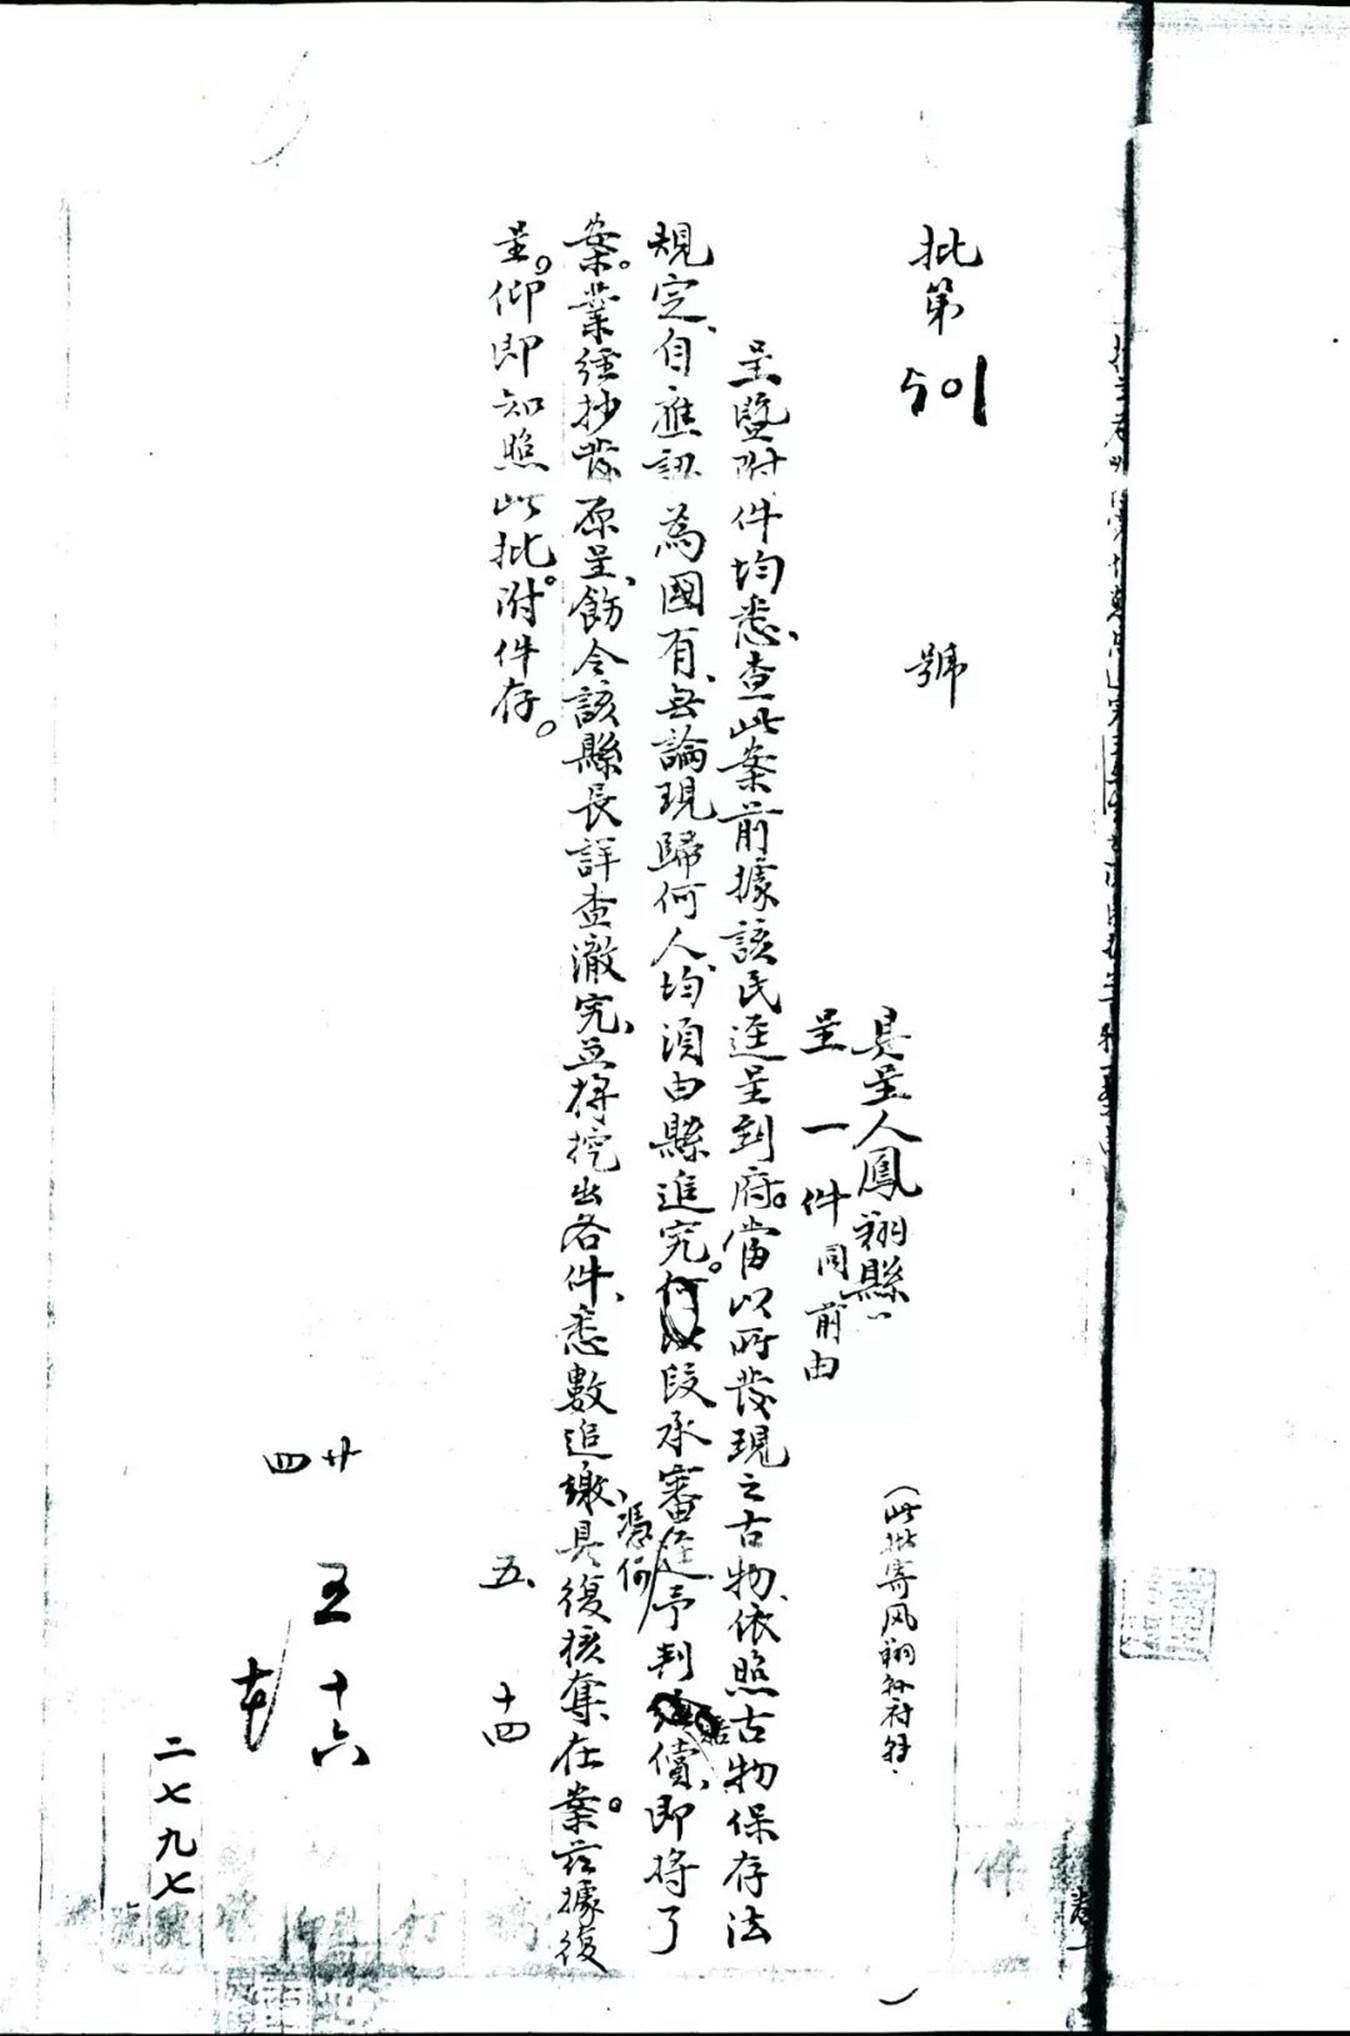 批第501號
具呈人鳳翔縣
（此批寄凤翔 ）
呈一件同前由
呈暨附件均悉、查此案前據該民逕呈到府。當以所發現之古物、依照古物保存法
規定、自應認為國有、無論現歸何人、均須由縣追究。段承審憑何逕予判償、即將了
案。業經抄發原呈、飭令該縣長詳查澈究、並將挖出各件、悉數追繳、具復核奪在案。茲據復
呈。仰即知照此批。附件存。
五、十四
五十六
廿四
二七九七